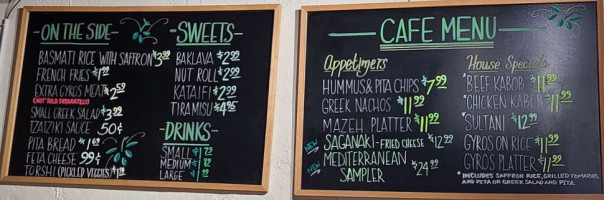 ON THE SIDE
BASMATI RICE WITH SAFFRON $3.99
FRENCH FRIES
EXTRA GYROS MEAT $2.59
(NOT SOLD SEPARATELY)
SMALL GREEK SALAD $3.99
TZATZIKI SAUCE 50¢
PITA BREAD
FETA CHEESE 99¢
TORSHI (PICKLED VEGGIES)
SWEETS
BAKLAVA $2.99
NUT ROLL $2.99
KATAIFI $2.99
TIRAMISU $4.95
DRINKS
SMALL
MEDIUM
LARGE
CAFE MENU
Appetizers
HUMMUS & PITA CHIPS $7.99
GREEK NACHOS $11.99
MAZEH PLATTER $11.99
NEW SAGANAKI - FRIED CHEESE $12.99
NEW MEDITERRANEAN
SAMPLER $24.99
House Specials
*BEEF KABOB $11.99
*CHICKEN KABOB $11.99
*SULTANI $12.99
GYROS ON RICE $11.99
GYROS PLATTER $11.99
*INCLUDES SAFFRON RICE, GRILLED TOMATOES,
AND PITA OR GREEK SALAD AND PITA.